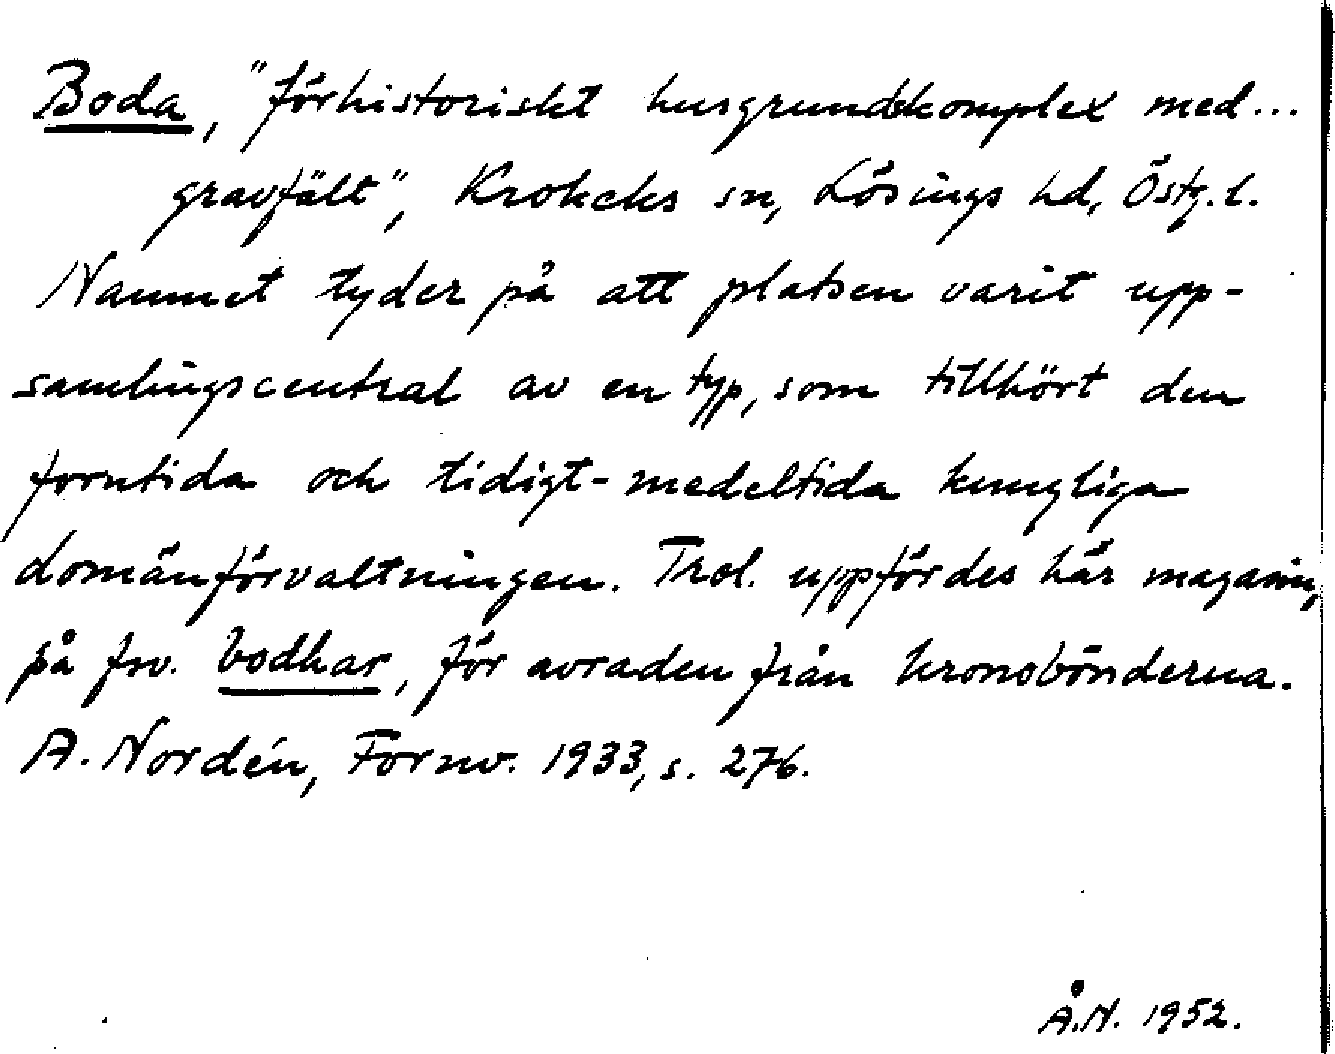 Boda, "förhistoriskt husgrundskomplex med...
gravfält", Krokeks sn, Lösings hd, Östg.l.
Namnet tyder på att platsen varit upp-
samlingscentral av en typ, som tillhört den
forntida och tidigt-medeltida kungliga
domänförvaltningen. Trol. uppfördes här magasin,
på fsv. bodhar, för avraden från kronobönderna.
A. Nordén, Fornv. 1933, s. 276.
Å.N. 1952.